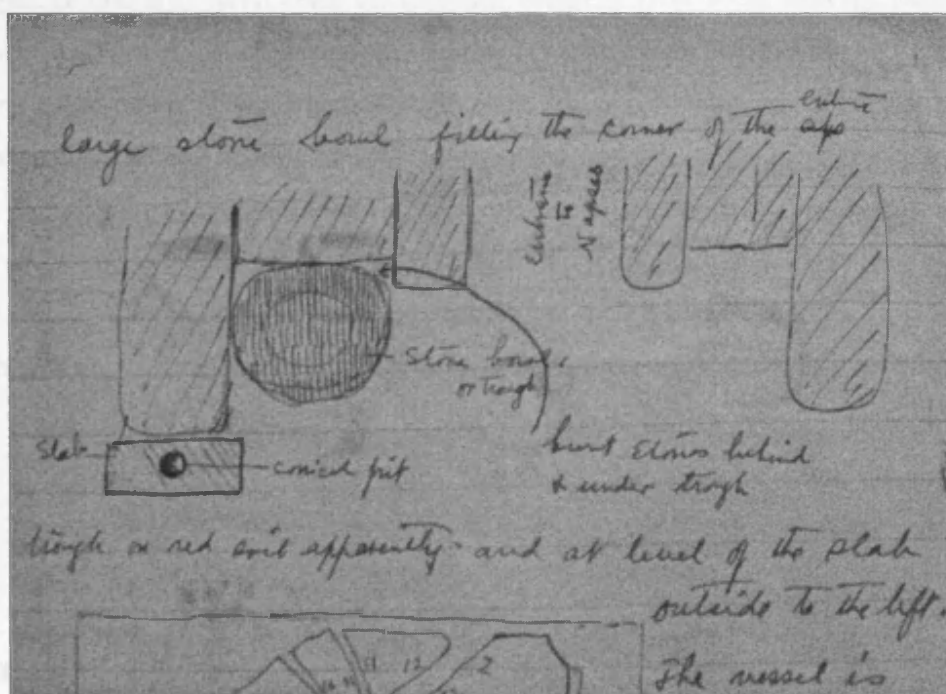 large stone bowl filling the corner of the entire aps
Entrance
to
N apses
Stone bowl
or trough
Slab
conical pit
burnt stones behind
& under trough
trough on red soil apparently and at level of the slab
outside to the left.
11 12 2
The vessel is